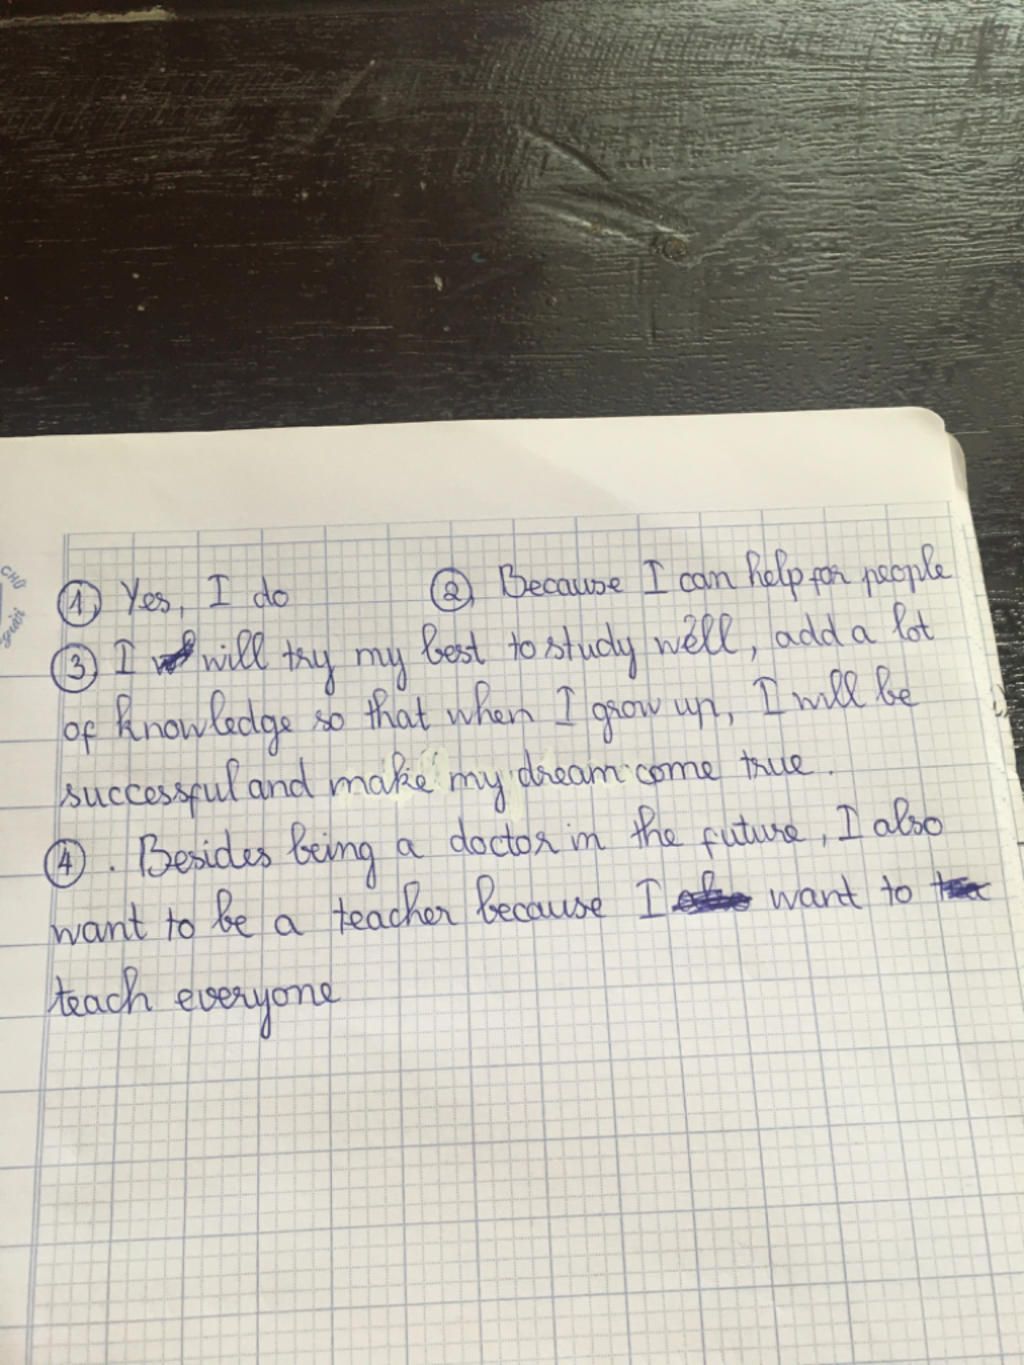 ① Yes, I do ② Because I can help for people
③ I will try my best to study well, add a lot
of knowledge so that when I grow up, I will be
successful and make my dream come true.
④. Besides being a doctor in the future, I also
want to be a teacher because I want to
teach everyone
CHỮ
người